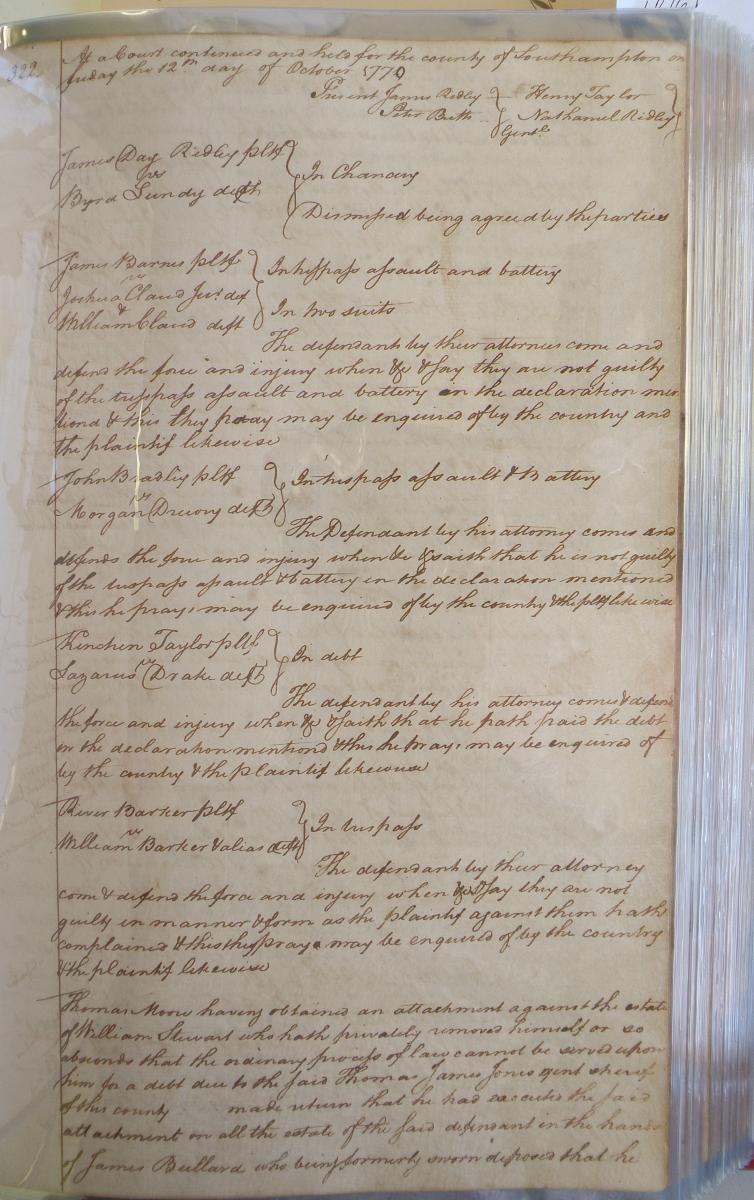 322
At a Court continued and held for the county of Southampton on
friday the 12th day of October 1770
Present James Ridley Henry Taylor
Peter Butts Nathaniel Ridley
Gentl.
James Day Ridley pltf
vs In Chancery
Byrd Lundy deft
Dismissed being agreed by the parties
James Barnes pltf In trespass assault and battery
vs
Joshua Claud Junr def
& In two suits
William Claud deft
The defendants by their attornies come and
defend the force and injury when &c & say they are not guilty
of the trespass assault and battery in the declaration men
tiond & this they pray may be enquired of by the country and
the plaintif likewise
John Bradley pltf In trespass assault & Battery
vs
Morgan Drewry deft
The Defendant by his attorney comes and
defends the force and injury when &c & saith that he is not guilty
of the trespass assault & battery in the declaration mentioned
& this he prays may be enquired of by the country & the pltf likewise
Kinchen Taylor pltf
vs In debt
Lazarus Drake deft
The defendant by his attorney comes & defends
the force and injury when &c & saith that he hath paid the debt
in the declaration mentiond & this he prays may be enquired of
by the country & the plaintif likewise
River Barker pltf
vs In trespass
William Barker & alias deft
The defendant by their attorney
come & defend the force and injury when &c & say they are not
guilty in manner & form as the plaintif against them hath
complained & this they pray may be enquired of by the country
& the plaintif likewise
Thomas Moore having obtained an attachment against the estate
of William Stewart who hath privately removed himself or so
absconds that the ordinary process of law cannot be served upon
him for a debt due to the said Thomas James Jones gent sherif
of this county made return that he had executed the said
attachment on all the estate of the said defendant in the hands
of James Bullard who being formerly sworn deposed that he